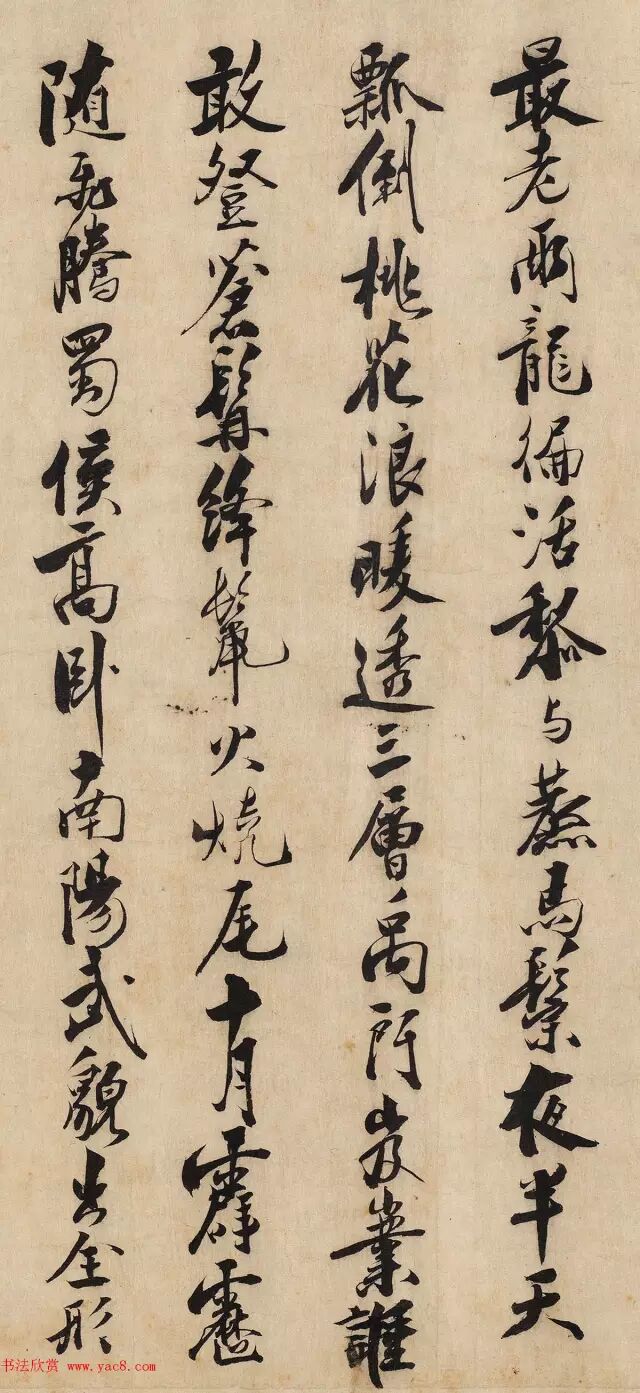 最老兩龍偏活黎与蒸馬鬃夜半天
瓢倒桃花浪暖透三層禹門岌嶪誰
敢登蒼髯絳鬣火燒尾十月霹靂
随飛騰蜀侯高卧南陽武貌出全形
书法欣赏 www.yac8.com